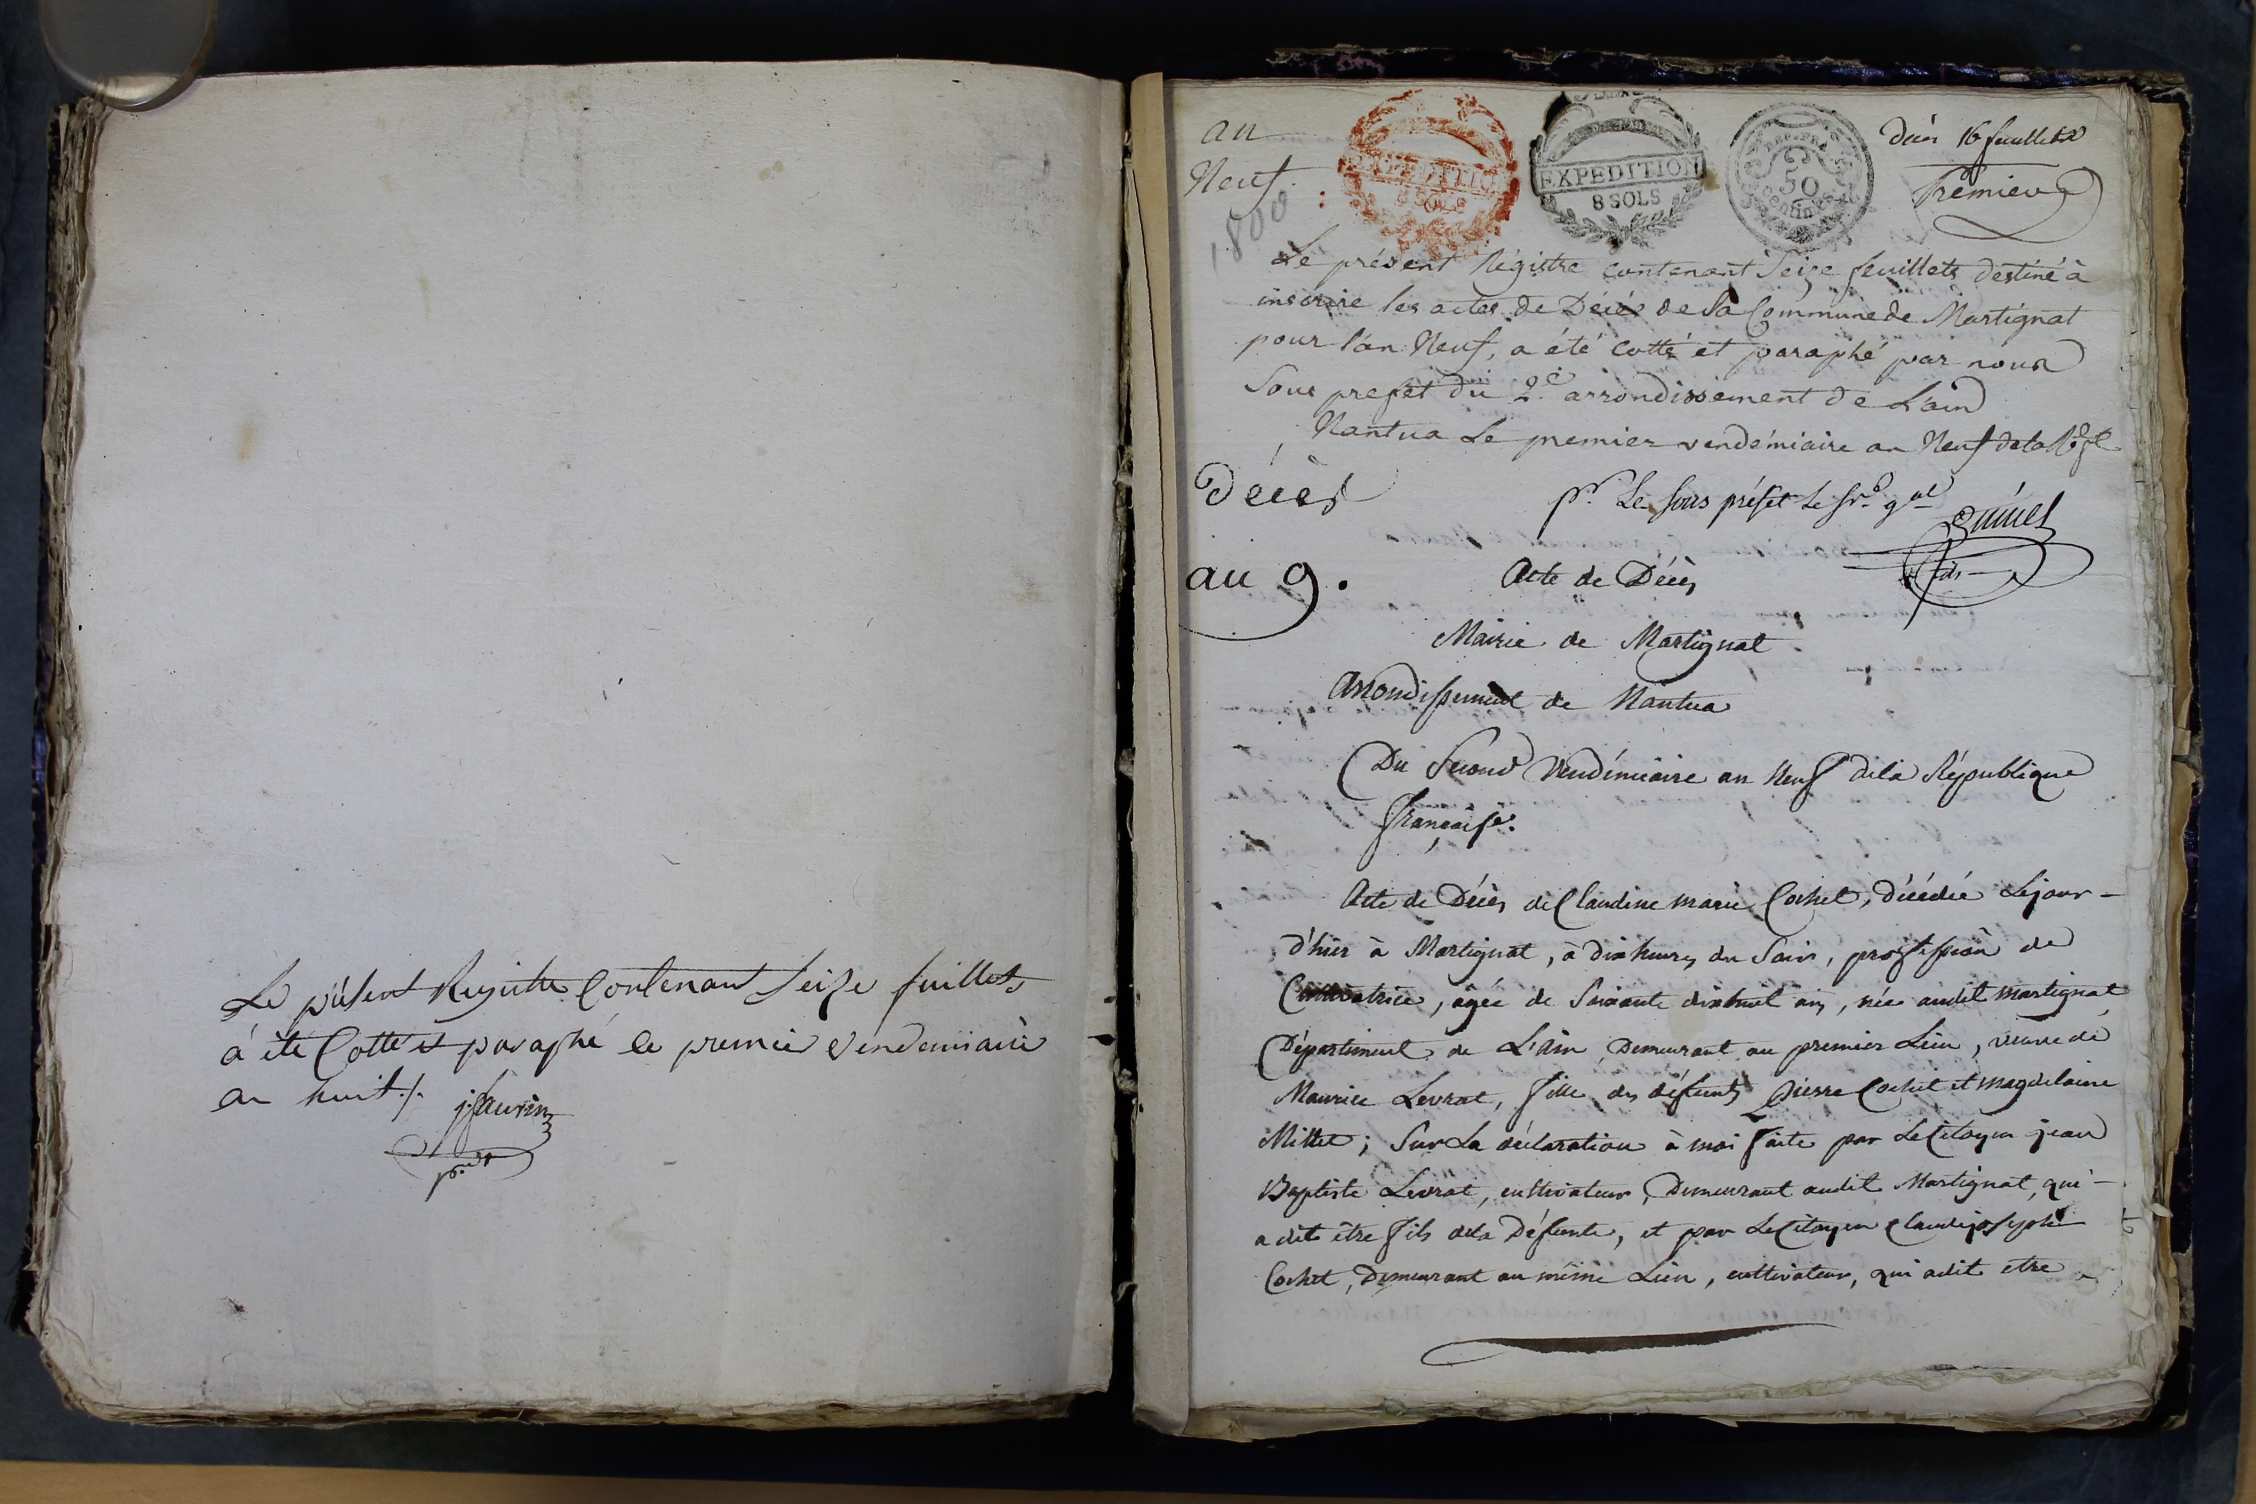 Le présent Registre Contenant seize feuillets
à été Cotté et paraphé le premier vendemiaire
an huit ./. j: Saurin
an
Neuf.
1800
EXPEDITION
8 SOLS
EXPEDITION
8 SOLS
50
Centimes
Décès 16 feuillets
Premier
Le présent Régistre contenant Seize feuillets destiné à
inscrire les actes de Décès de la Commune de Martignat
pour l'an Neuf, a été cotté et paraphé par nous
Sous prefet du 2e. arrondissement de L'ain
Nantua Le premier vendémiaire an Neuf de la Rép.
Décès
pr. Le sous préfet le
an 9.
Acte de Décès
Mairie de Martignat
Arrondissement de Nantua
Du Second Vendémiaire an Neuf de la République
française.
Acte de Décès de Claudine marie Cochet, Décédée Le jour-
d'hier à Martignat, à dix heures du Soir, profession de
Cultivatrice, agée de Soixante dixhuit ans, née audit martignat
Département de L'Ain Demeurant au premier Lieu, veuve de
Maurice Levrat, fille des défunts Pierre Cochet et Magdelaine
Millet; Sur La déclaration à moi faite par Le Citoyen jean
Baptiste Levrat, cultivateur, Demeurant audit Martignat, qui-
a dit être fils de la Défunte, et par Le Citoyen Claude joseph
Cochet, Demeurant au même Lieu, cultivateur, qui a dit etre